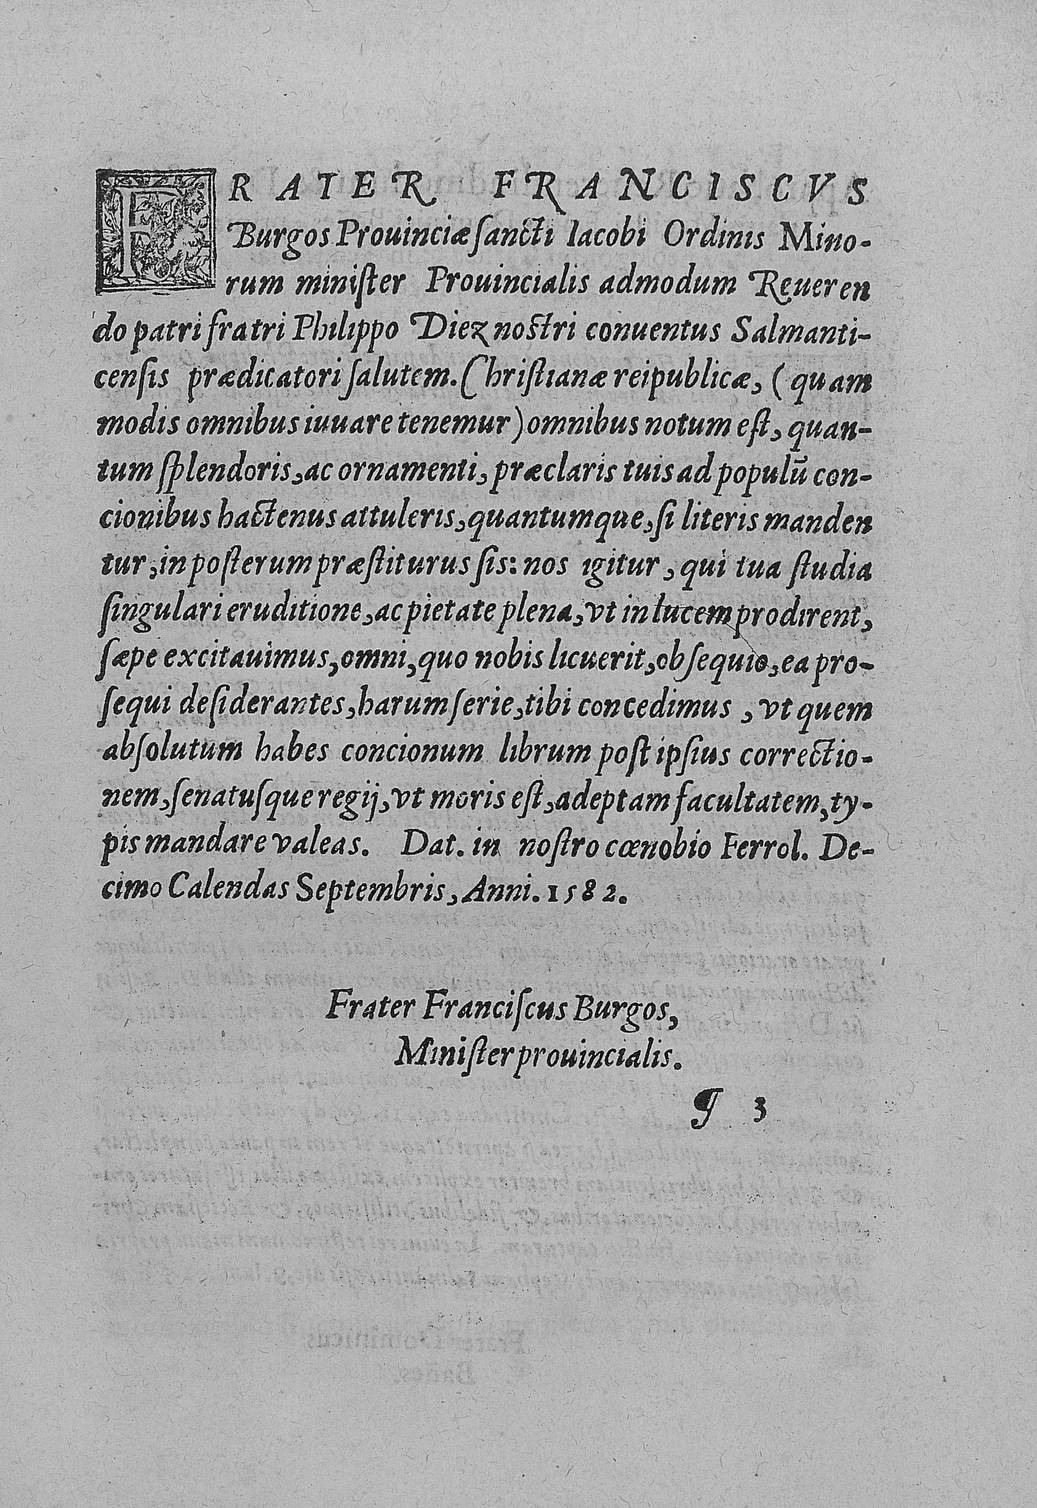 FRATER FRANCISCVS
Burgos Prouinciæ sancti Iacobi Ordinis Mino-
rum minister Prouincialis admodum Reueren
do patri fratri Philippo Diez nostri conuentus Salmanti-
censis prædicatori salutem. Christianæ reipublicæ, (quam
modis omnibus iuuare tenemur) omnibus notum est, quan-
tum splendoris, ac ornamenti, præclaris tuis ad populũ con-
cionibus hactenus attuleris, quantumque, si literis manden
tur, in posterum præstiturus sis: nos igitur, qui tua studia
singulari eruditione, ac pietate plena, vt in lucem prodirent,
sæpe excitauimus, omni, quo nobis licuerit, obsequio, ea pro-
sequi desiderantes, harum serie, tibi concedimus, vt quem
absolutum habes concionum librum post ipsius correctio-
nem, senatusque regij, vt moris est, adeptam facultatem, ty-
pis mandare valeas. Dat. in nostro cœnobio Ferrol. De-
cimo Calendas Septembris, Anni. 1582.
Frater Franciscus Burgos,
Minister prouincialis.
¶ 3
Frater Dominicus
Bañes.